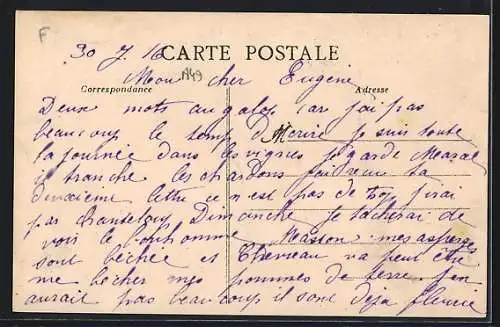 F
30 7 16 CARTE POSTALE
A49
Mon cher Eugène
Correspondance Adresse
Deux mots au galop car jai pas
beaucoup le temps d M ecrire je suis toute
la journée dans les vignes je garde Marcel
je tranche les chardons jai reçu ta
deuxieme lettre ce n est pas de jirai
par Chanteloup Dimanche Je tacherai de
voir le bonhomme Masson mes asperges
sont béchée et Chereau va peut être
me bécher mes pommes de terre jen
aurait pas beaucoup il sont déja fleurie